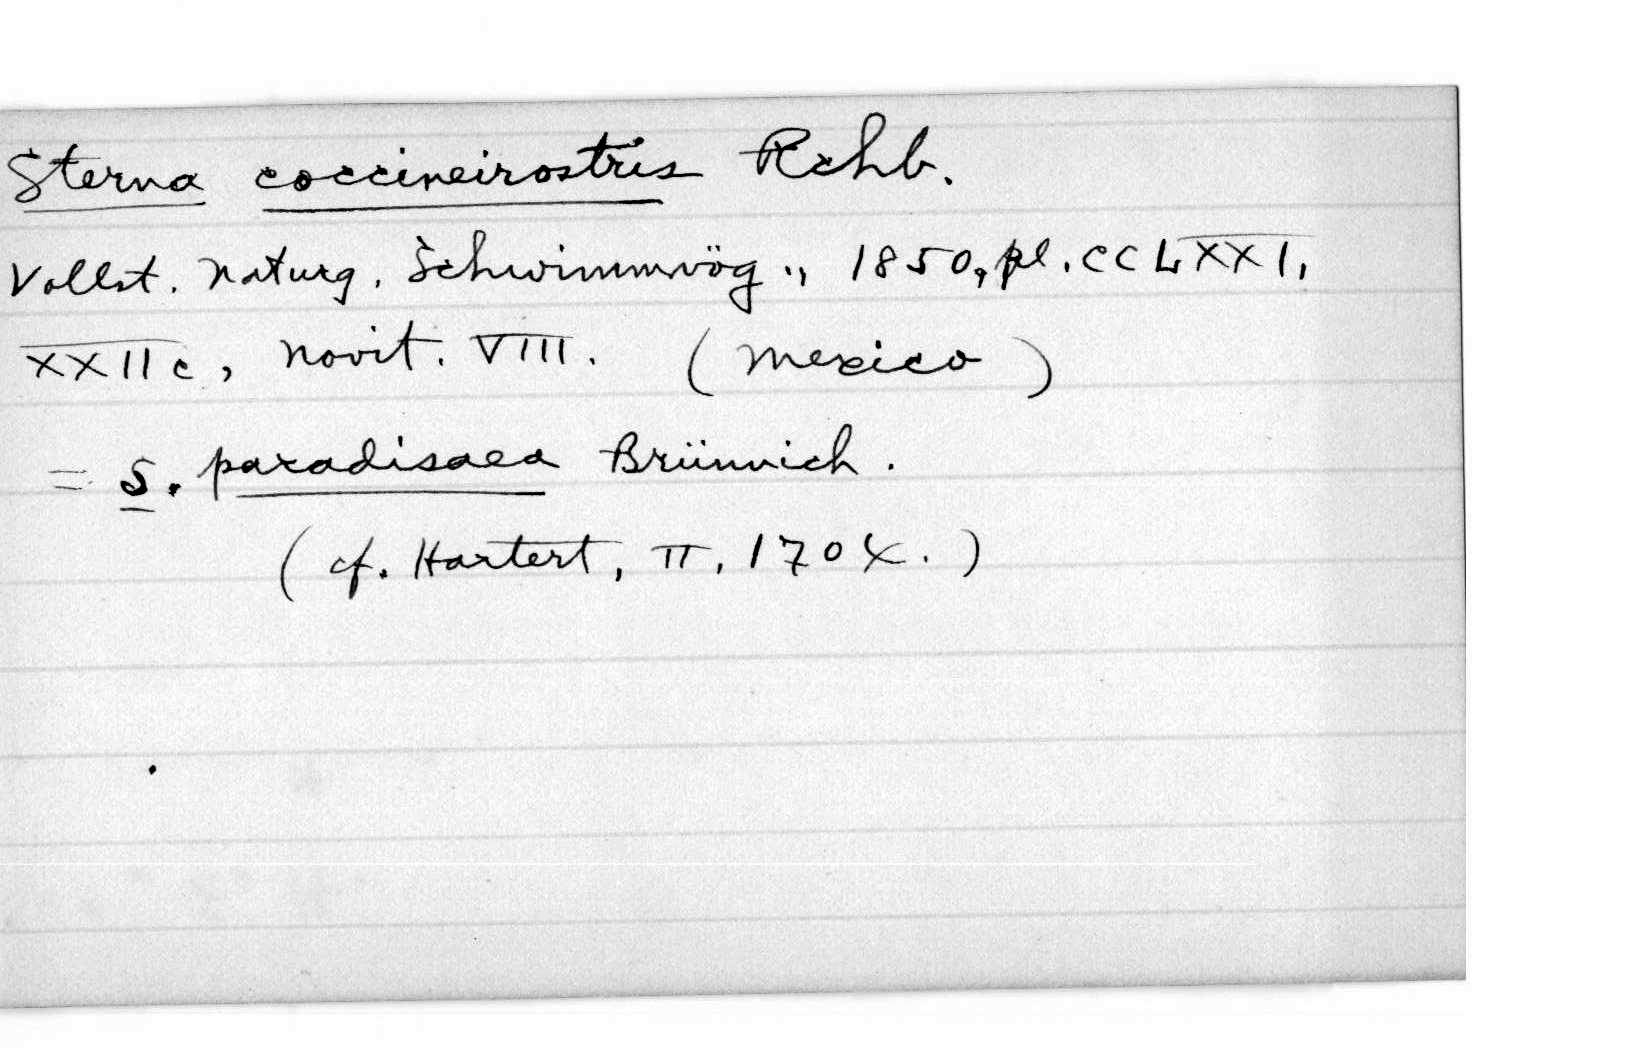 Sterna coccineirostris Rchb.
Vollst. Naturg. Schwimmvög., 1850, pl. CCLXXI,
XXIIc, Novit. VIII. (Mexico)
= S. paradisaea Brünnich.
(cf. Hartert, II, 1704.)